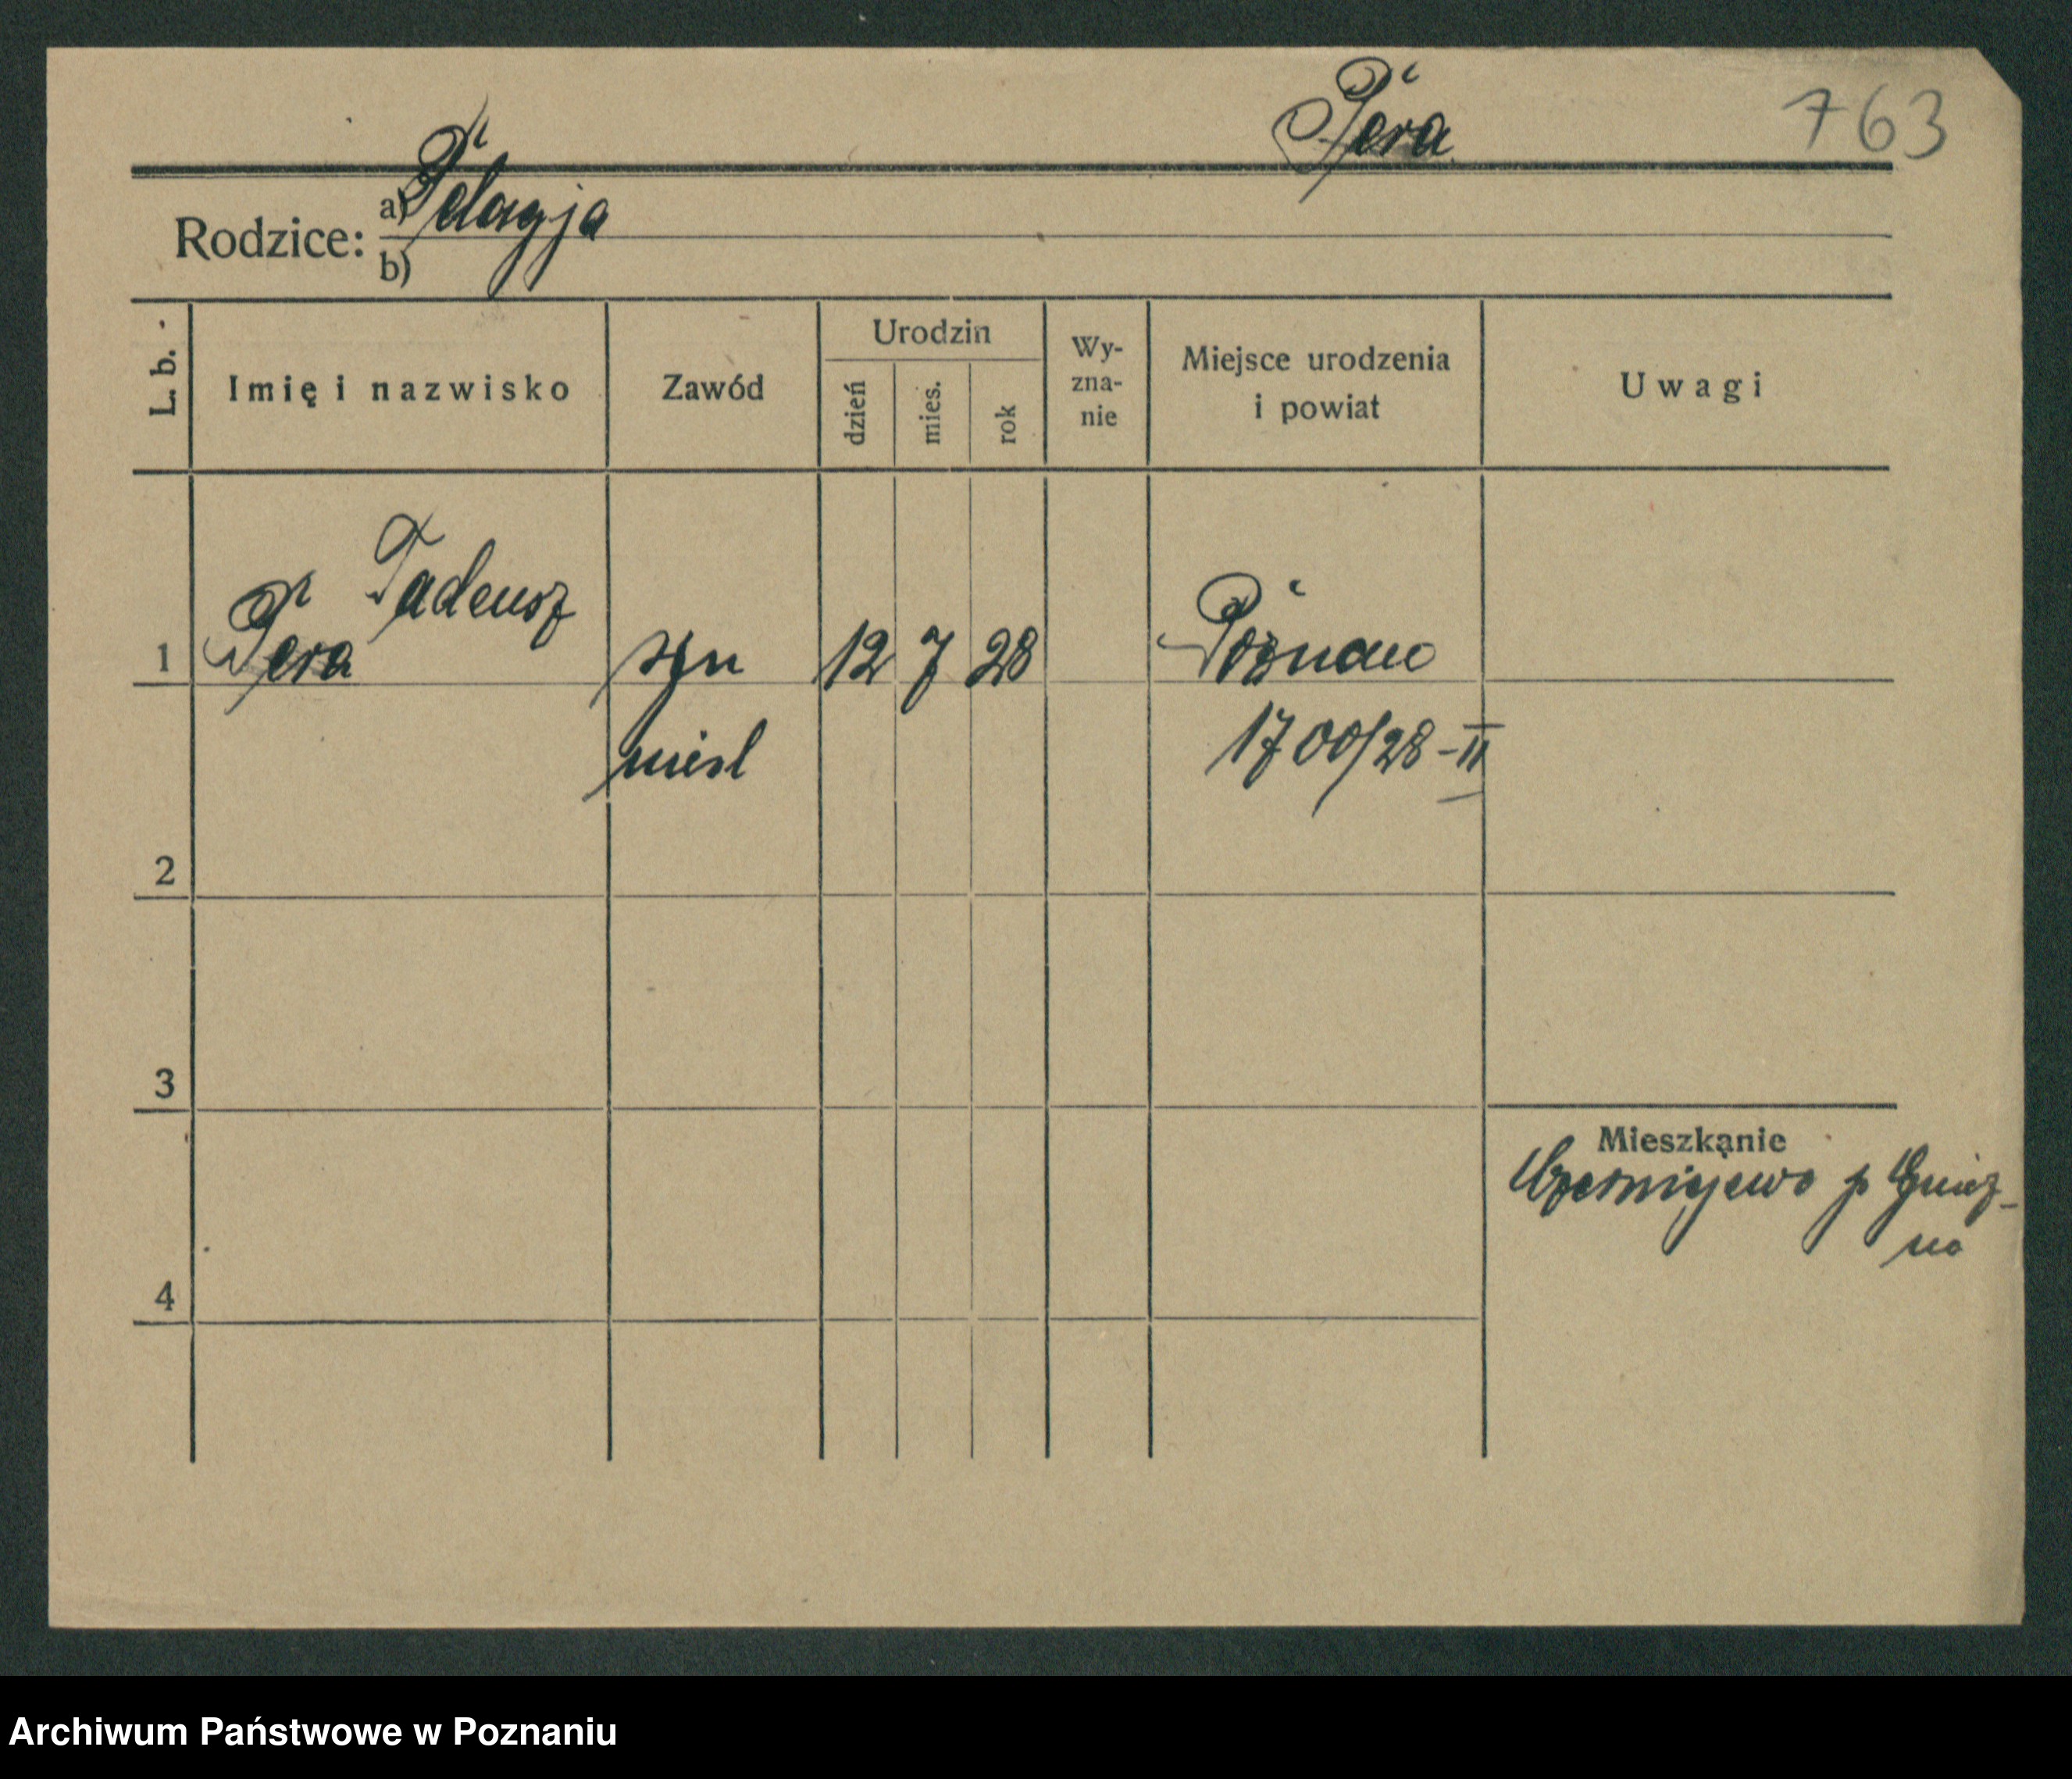 Pera 763
Rodzice: a) Pelagja
b)
L. b. Imię i nazwisko Zawód Urodzin dzień mies. rok Wy-zna-nie Miejsce urodzenia i powiat Uwagi
Tadeusz
1 Pera syn 12 7 28 Poznań
nieśl 1700/28-II
2
3
Mieszkanie
Czerniejewo p Gniez-
no
4
Archiwum Państwowe w Poznaniu